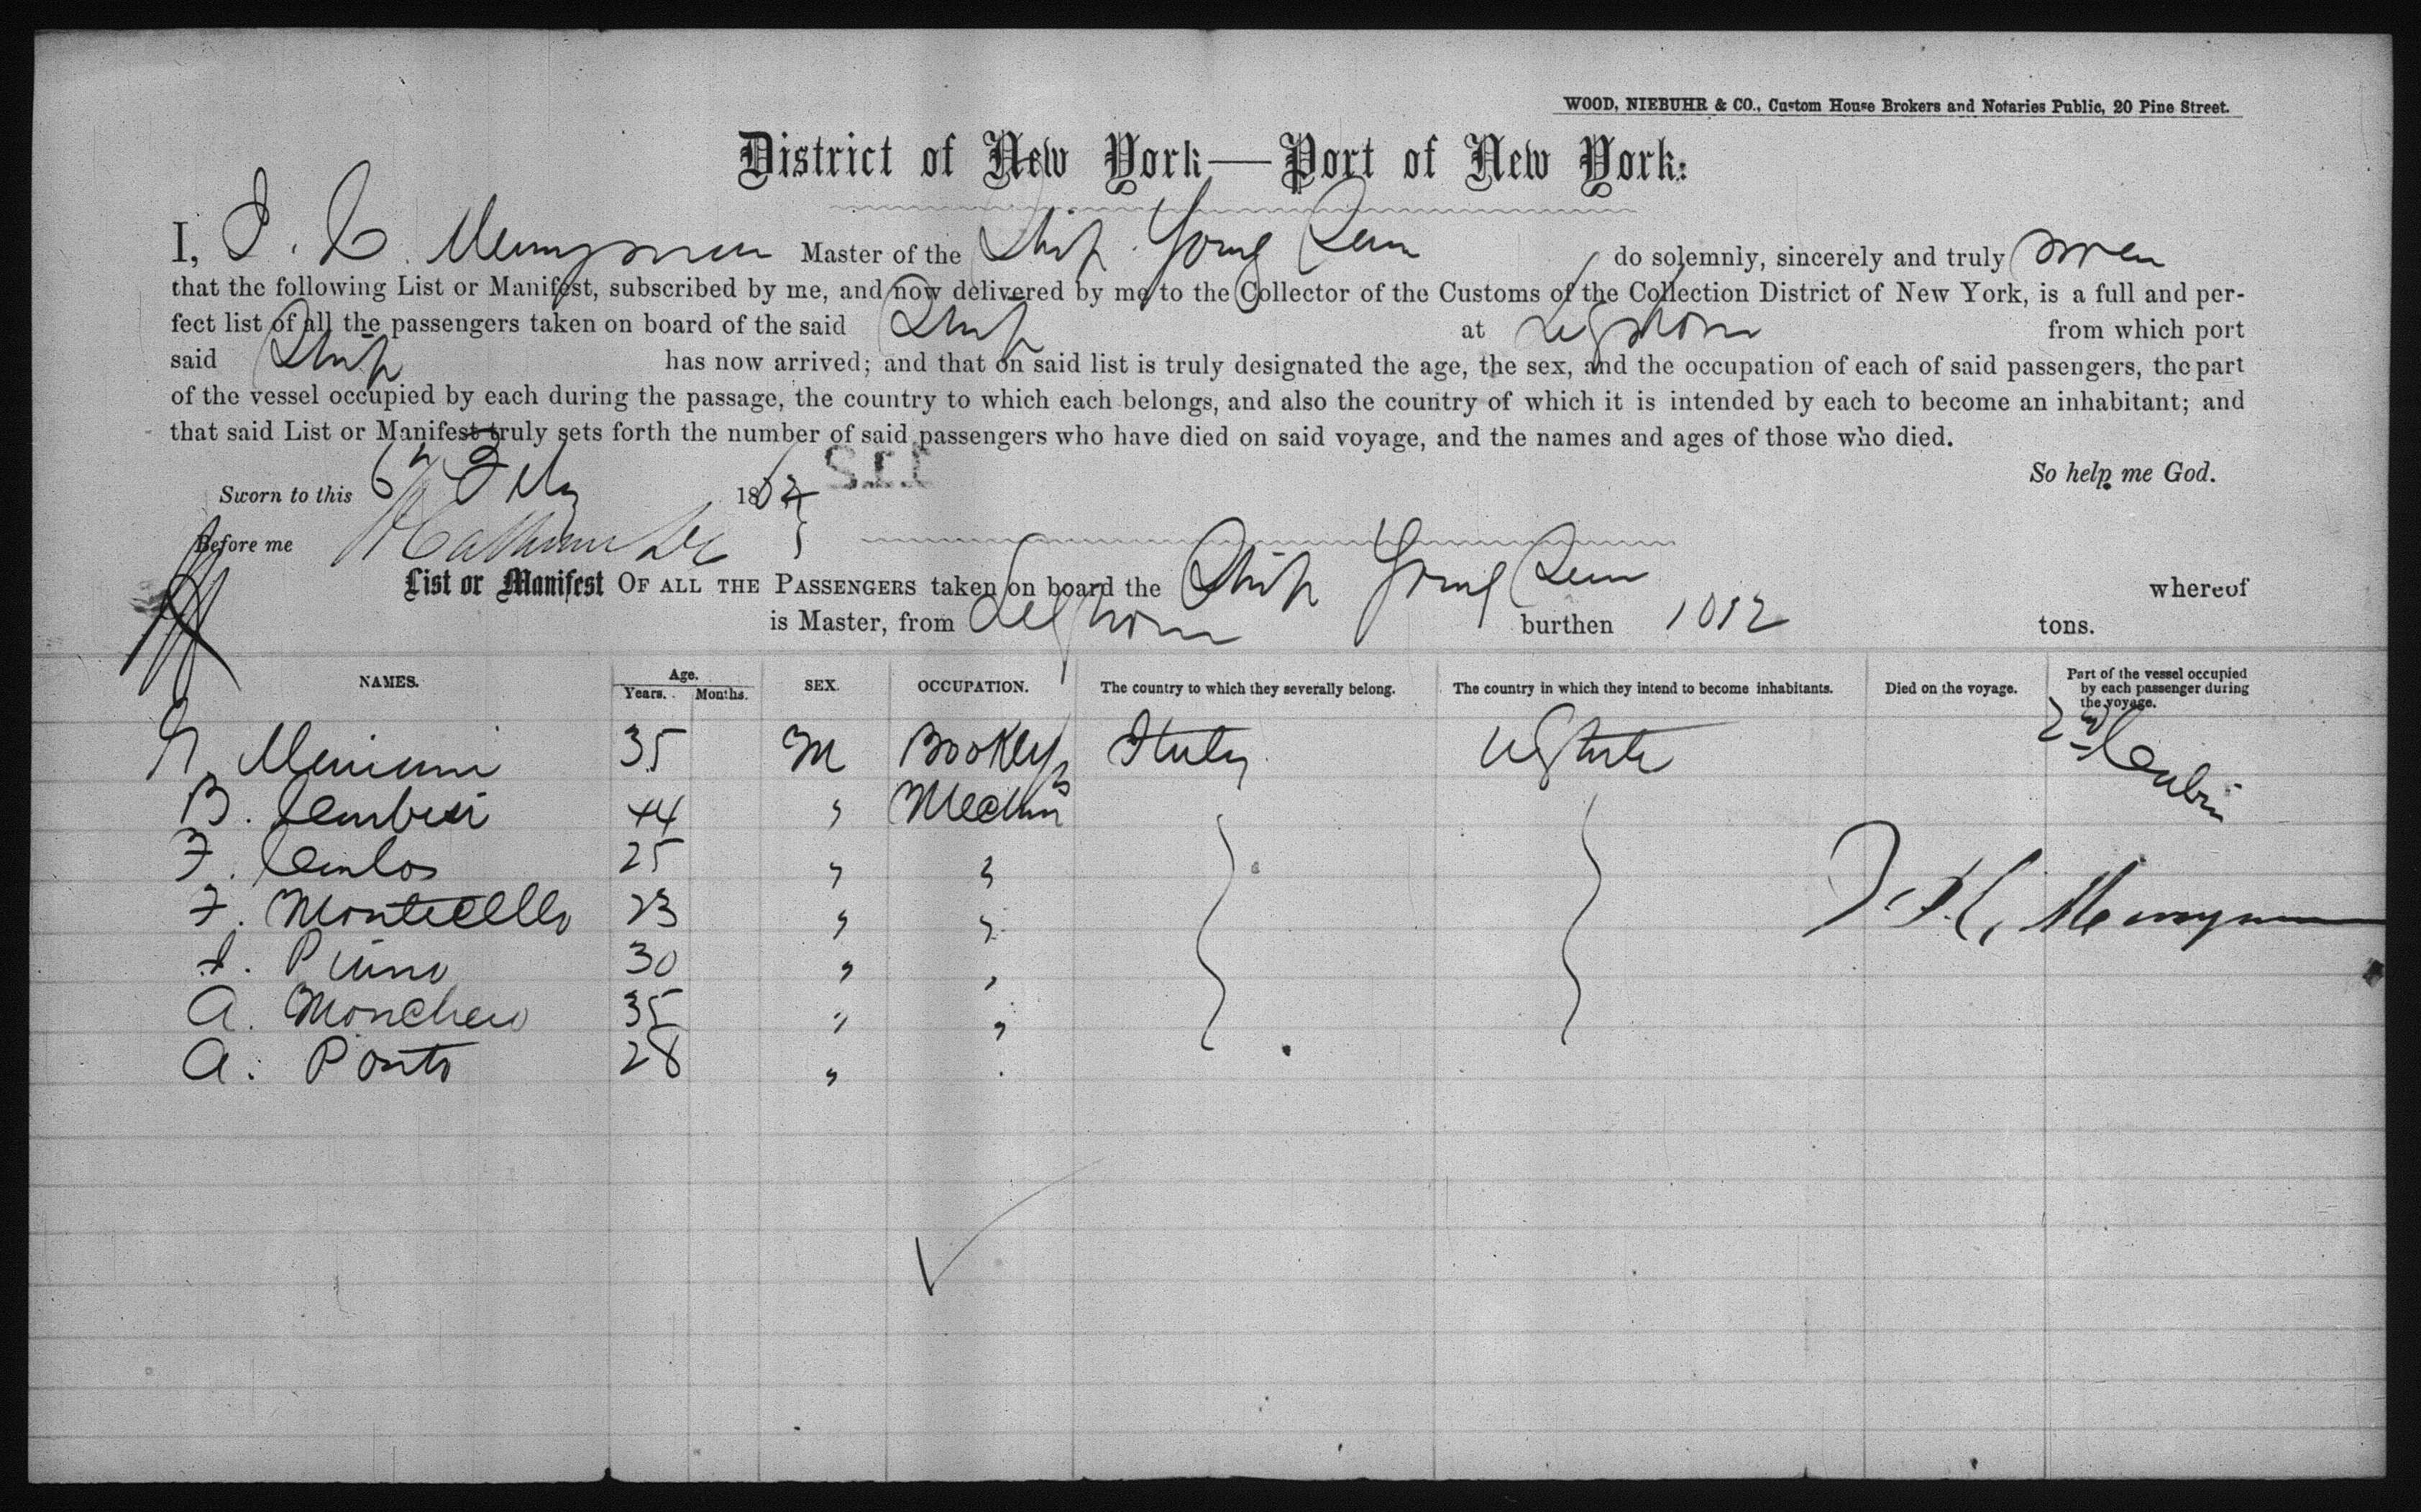 WOOD, NIEBUHR & CO., Custom House Brokers and Notaries Public, 20 Pine Street.
District of New York—Port of New York:
I, Merryman Master of the Ship do solemnly, sincerely and truly swear
that the following List or Manifest, subscribed by me, and now delivered by me to the Collector of the Customs of the Collection District of New York, is a full and per-
fect list of all the passengers taken on board of the said Ship at Leghorn from which port
said Ship has now arrived; and that on said list is truly designated the age, the sex, and the occupation of each of said passengers, the part
of the vessel occupied by each during the passage, the country to which each belongs, and also the country of which it is intended by each to become an inhabitant; and
that said List or Manifest truly sets forth the number of said passengers who have died on said voyage, and the names and ages of those who died.
So help me God.
Sworn to this 6th Feby 18
Before me
List or Manifest OF ALL THE PASSENGERS taken on board the Ship whereof
is Master, from Leghorn burthen 1012 tons.
NAMES. Age. Years. Months. SEX. OCCUPATION. The country to which they severally belong. The country in which they intend to become inhabitants. Died on the voyage. Part of the vessel occupied by each passenger during the voyage.
35 M Italy U States 2nd Cabin
B. 44 " 
F. Carlos 25 " "
F. Monticello 23 " "
30 " "
A. 35 " "
A. Ponto 28 "
Merryman